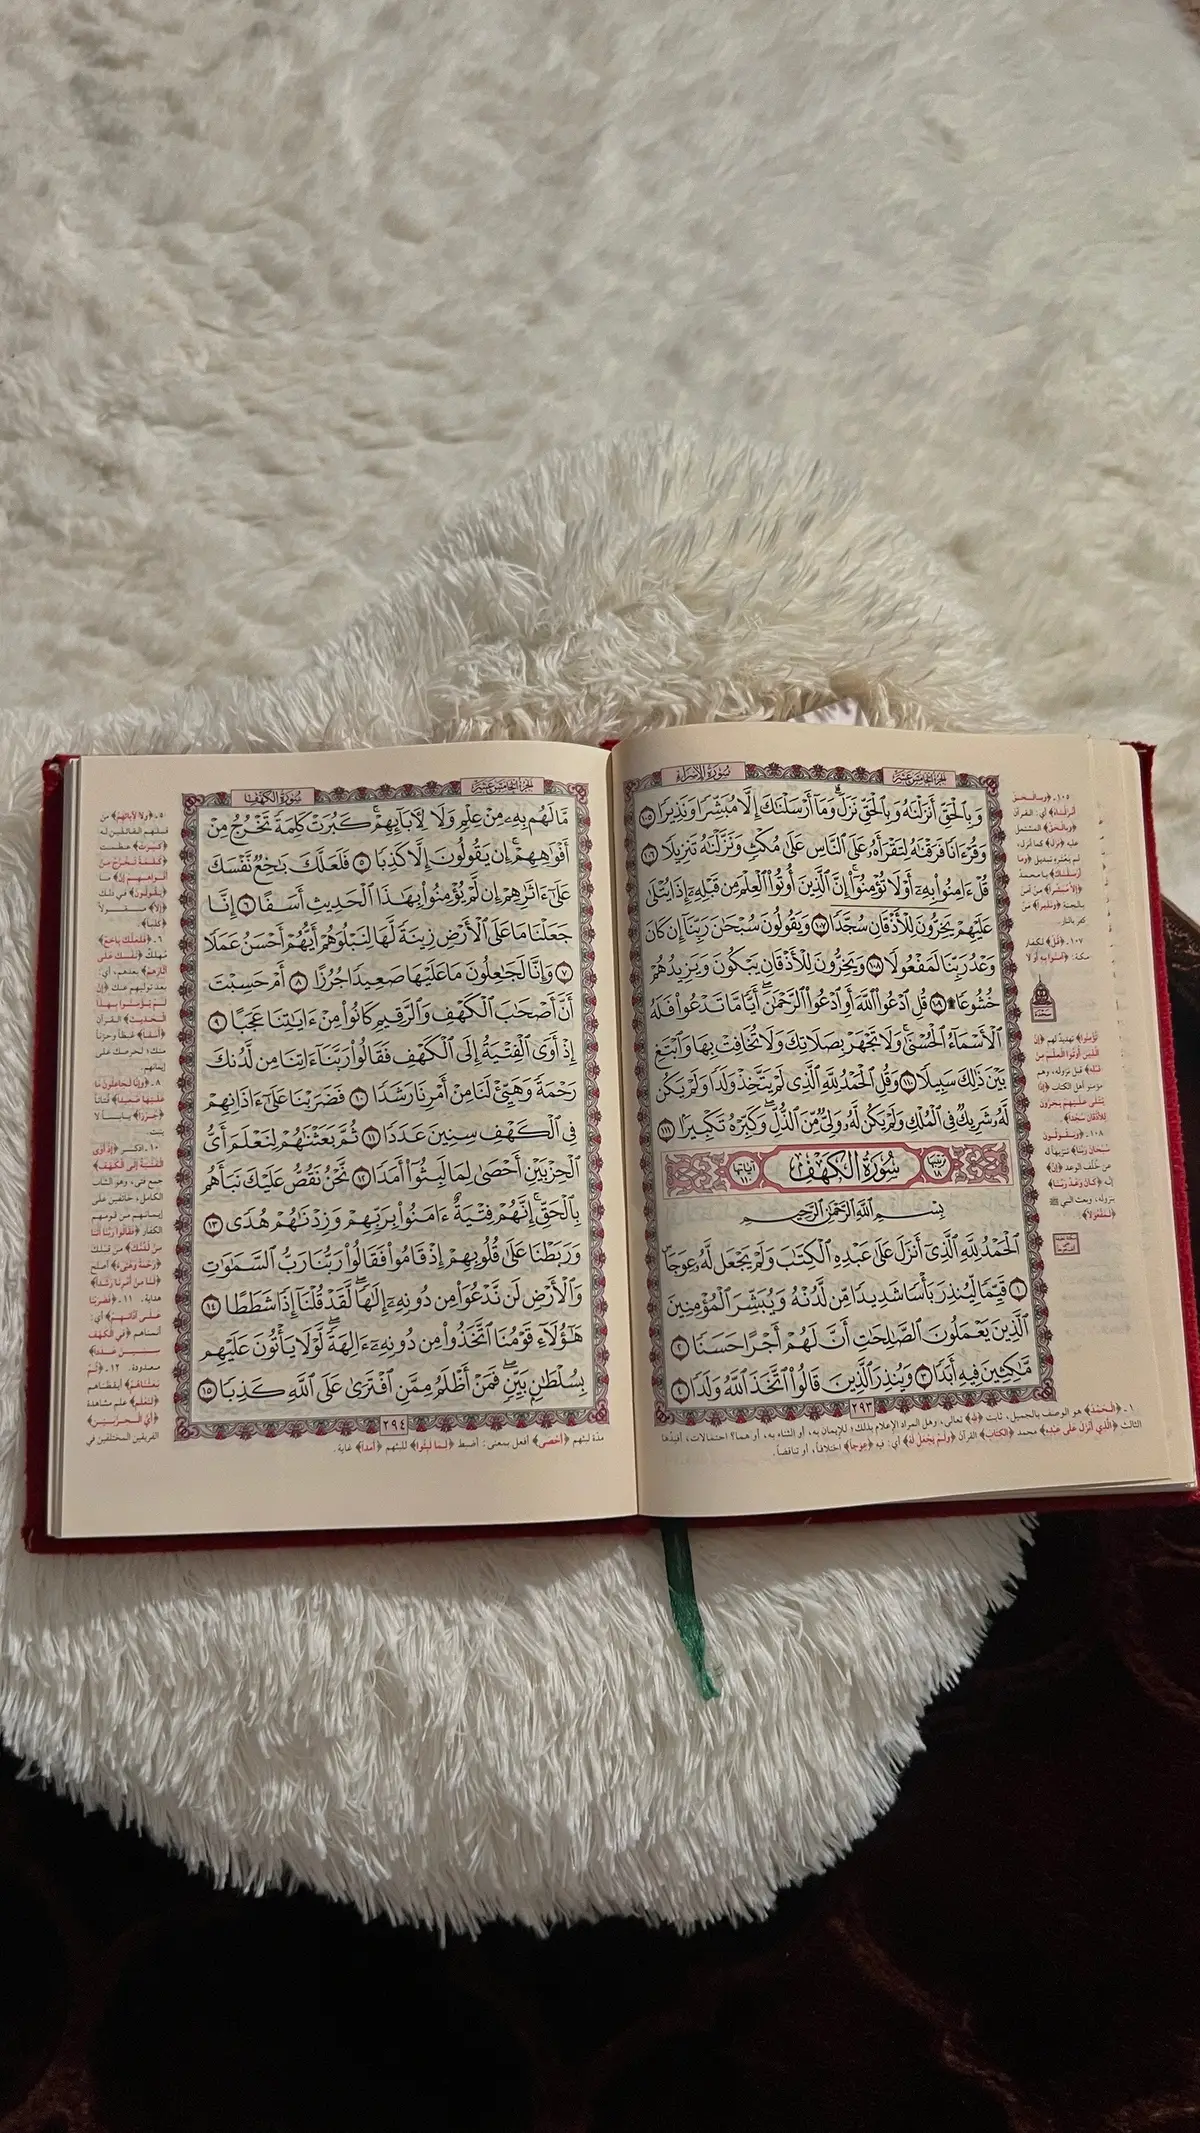 سُورَةُ الإِسْرَاءِ
الجُزْءُ الخَامِسَ عَشَرَ
وَبِٱلْحَقِّ أَنزَلْنَٰهُ وَبِٱلْحَقِّ نَزَلَ ۗ وَمَآ أَرْسَلْنَٰكَ إِلَّا مُبَشِّرًا وَنَذِيرًا ١٠٥
وَقُرْءَانًا فَرَقْنَٰهُ لِتَقْرَأَهُۥ عَلَى ٱلنَّاسِ عَلَىٰ مُكْثٍ وَنَزَّلْنَٰهُ تَنزِيلًا ١٠٦
قُلْ ءَامِنُوا۟ بِهِۦٓ أَوْ لَا تُؤْمِنُوٓا۟ ۚ إِنَّ ٱلَّذِينَ أُوتُوا۟ ٱلْعِلْمَ مِن قَبْلِهِۦٓ إِذَا يُتْلَىٰ
عَلَيْهِمْ يَخِرُّونَ لِلْأَذْقَانِ سُجَّدًا ١٠٧ وَيَقُولُونَ سُبْحَٰنَ رَبِّنَآ إِن كَانَ
وَعْدُ رَبِّنَا لَمَفْعُولًا ١٠٨ وَيَخِرُّونَ لِلْأَذْقَانِ يَبْكُونَ وَيَزِيدُهُمْ
خُشُوعًا ۩ ١٠٩ قُلِ ٱدْعُوا۟ ٱللَّهَ أَوِ ٱدْعُوا۟ ٱلرَّحْمَٰنَ ۖ أَيًّا مَّا تَدْعُوا۟ فَلَهُ
ٱلْأَسْمَآءُ ٱلْحُسْنَىٰ ۚ وَلَا تَجْهَرْ بِصَلَاتِكَ وَلَا تُخَافِتْ بِهَا وَٱبْتَغِ
بَيْنَ ذَٰلِكَ سَبِيلًا ١١٠ وَقُلِ ٱلْحَمْدُ لِلَّهِ ٱلَّذِى لَمْ يَتَّخِذْ وَلَدًا وَلَمْ يَكُن
لَّهُۥ شَرِيكٌ فِى ٱلْمُلْكِ وَلَمْ يَكُن لَّهُۥ وَلِىٌّ مِّنَ ٱلذُّلِّ ۖ وَكَبِّرْهُ تَكْبِيرًا ١١١
رتيبها ١٨ سُورَةُ الكَهْفِ آياتها ١١٠
بِسْمِ ٱللَّهِ ٱلرَّحْمَٰنِ ٱلرَّحِيمِ
ٱلْحَمْدُ لِلَّهِ ٱلَّذِىٓ أَنزَلَ عَلَىٰ عَبْدِهِ ٱلْكِتَٰبَ وَلَمْ يَجْعَل لَّهُۥ عِوَجَا ۜ
١ قَيِّمًا لِّيُنذِرَ بَأْسًا شَدِيدًا مِّن لَّدُنْهُ وَيُبَشِّرَ ٱلْمُؤْمِنِينَ
ٱلَّذِينَ يَعْمَلُونَ ٱلصَّٰلِحَٰتِ أَنَّ لَهُمْ أَجْرًا حَسَنًا ٢
مَّٰكِثِينَ فِيهِ أَبَدًا ٣ وَيُنذِرَ ٱلَّذِينَ قَالُوا۟ ٱتَّخَذَ ٱللَّهُ وَلَدًا ٤
٢٩٣
١ - ﴿الْحَمْدُ﴾ هو الوصف بالجميل، ثابت ﴿لله﴾ تعالى، وهل المراد الإعلام بذلك؛ للإيمان به، أو الثناء به، أو هما؟ احتمالات، أفيدها
الثالث ﴿الَّذِي أَنْزَلَ عَلَى عَبْدِهِ﴾ محمد ﴿الكتاب﴾ القرآن ﴿ولَمْ يَجْعَلْ لَهُ﴾ أي: فيه ﴿عِوَجاً﴾ اختلافاً، أو تناقضاً.
سُورَةُ الكَهْفِ
الجُزْءُ الخَامِسَ عَشَرَ
مَّا لَهُم بِهِۦ مِنْ عِلْمٍ وَلَا لِءَابَآئِهِمْ ۚ كَبُرَتْ كَلِمَةً تَخْرُجُ مِنْ
أَفْوَٰهِهِمْ ۚ إِن يَقُولُونَ إِلَّا كَذِبًا ٥ فَلَعَلَّكَ بَٰخِعٌ نَّفْسَكَ
عَلَىٰٓ ءَاثَٰرِهِمْ إِن لَّمْ يُؤْمِنُوا۟ بِهَٰذَا ٱلْحَدِيثِ أَسَفًا ٦ إِنَّا
جَعَلْنَا مَا عَلَى ٱلْأَرْضِ زِينَةً لَّهَا لِنَبْلُوَهُمْ أَيُّهُمْ أَحْسَنُ عَمَلًا
٧ وَإِنَّا لَجَٰعِلُونَ مَا عَلَيْهَا صَعِيدًا جُرُزًا ٨ أَمْ حَسِبْتَ
أَنَّ أَصْحَٰبَ ٱلْكَهْفِ وَٱلرَّقِيمِ كَانُوا۟ مِنْ ءَايَٰتِنَا عَجَبًا ٩
إِذْ أَوَى ٱلْفِتْيَةُ إِلَى ٱلْكَهْفِ فَقَالُوا۟ رَبَّنَآ ءَاتِنَا مِن لَّدُنكَ
رَحْمَةً وَهَيِّئْ لَنَا مِنْ أَمْرِنَا رَشَدًا ١٠ فَضَرَبْنَا عَلَىٰٓ ءَاذَانِهِمْ
فِى ٱلْكَهْفِ سِنِينَ عَدَدًا ١١ ثُمَّ بَعَثْنَٰهُمْ لِنَعْلَمَ أَىُّ
ٱلْحِزْبَيْنِ أَحْصَىٰ لِمَا لَبِثُوٓا۟ أَمَدًا ١٢ نَّحْنُ نَقُصُّ عَلَيْكَ نَبَأَهُم
بِٱلْحَقِّ ۚ إِنَّهُمْ فِتْيَةٌ ءَامَنُوا۟ بِرَبِّهِمْ وَزِدْنَٰهُمْ هُدًى ١٣
وَرَبَطْنَا عَلَىٰ قُلُوبِهِمْ إِذْ قَامُوا۟ فَقَالُوا۟ رَبُّنَا رَبُّ ٱلسَّمَٰوَٰتِ
وَٱلْأَرْضِ لَن نَّدْعُوَا۟ مِن دُونِهِۦٓ إِلَٰهًا ۖ لَّقَدْ قُلْنَآ إِذًا شَطَطًا ١٤
هَٰٓؤُلَآءِ قَوْمُنَا ٱتَّخَذُوا۟ مِن دُونِهِۦٓ ءَالِهَةً ۖ لَّوْلَا يَأْتُونَ عَلَيْهِم
بِسُلْطَٰنٍۭ بَيِّنٍ ۖ فَمَنْ أَظْلَمُ مِمَّنِ ٱفْتَرَىٰ عَلَى ٱللَّهِ كَذِبًا ١٥
٢٩٤
مدة لبثهم ﴿أَحْصَى﴾ أفعل بمعنى: أضبط ﴿لِمَا لَبِثُوا﴾ للبثهم ﴿أَمَداً﴾ غاية.